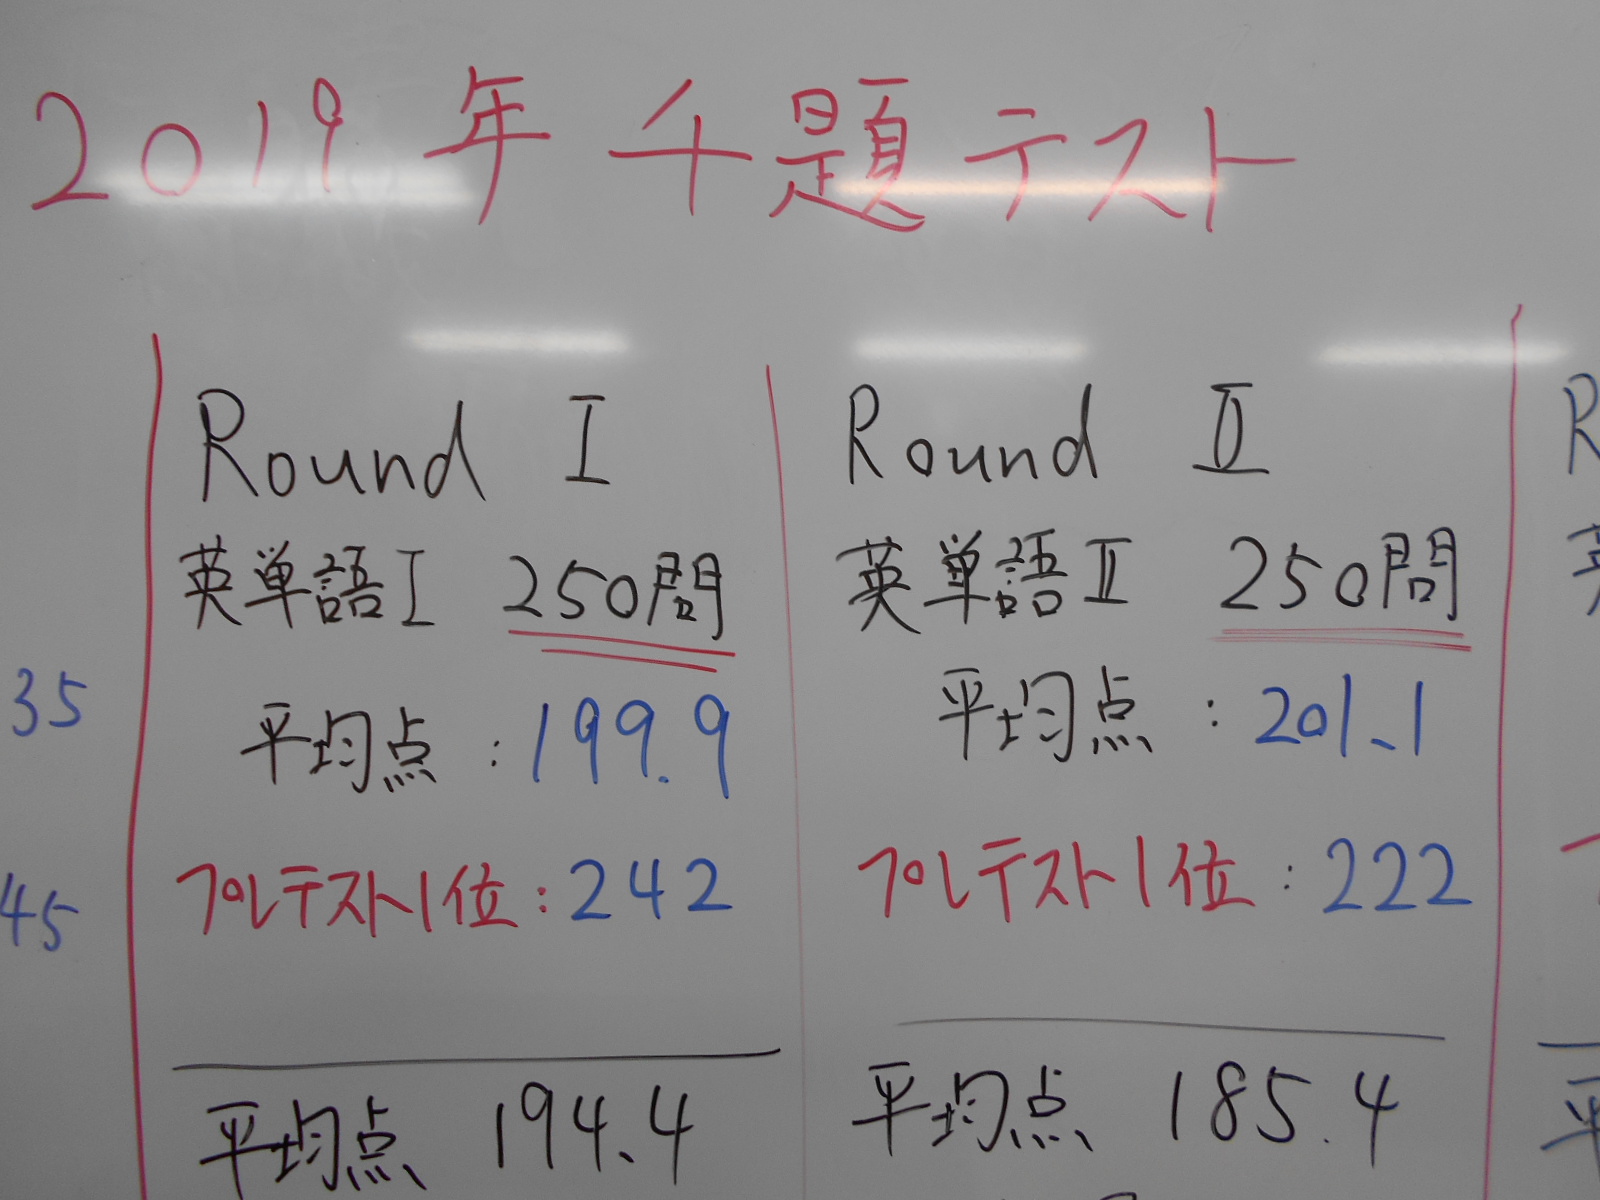 2019年 千題テスト
35
45
Round I
英単語I 250問
平均点:199.9
プレテスト1位:242
平均点 194.4
Round II
英単語II 250問
平均点:201.1
プレテスト1位:222
平均点 185.4
R
英
平